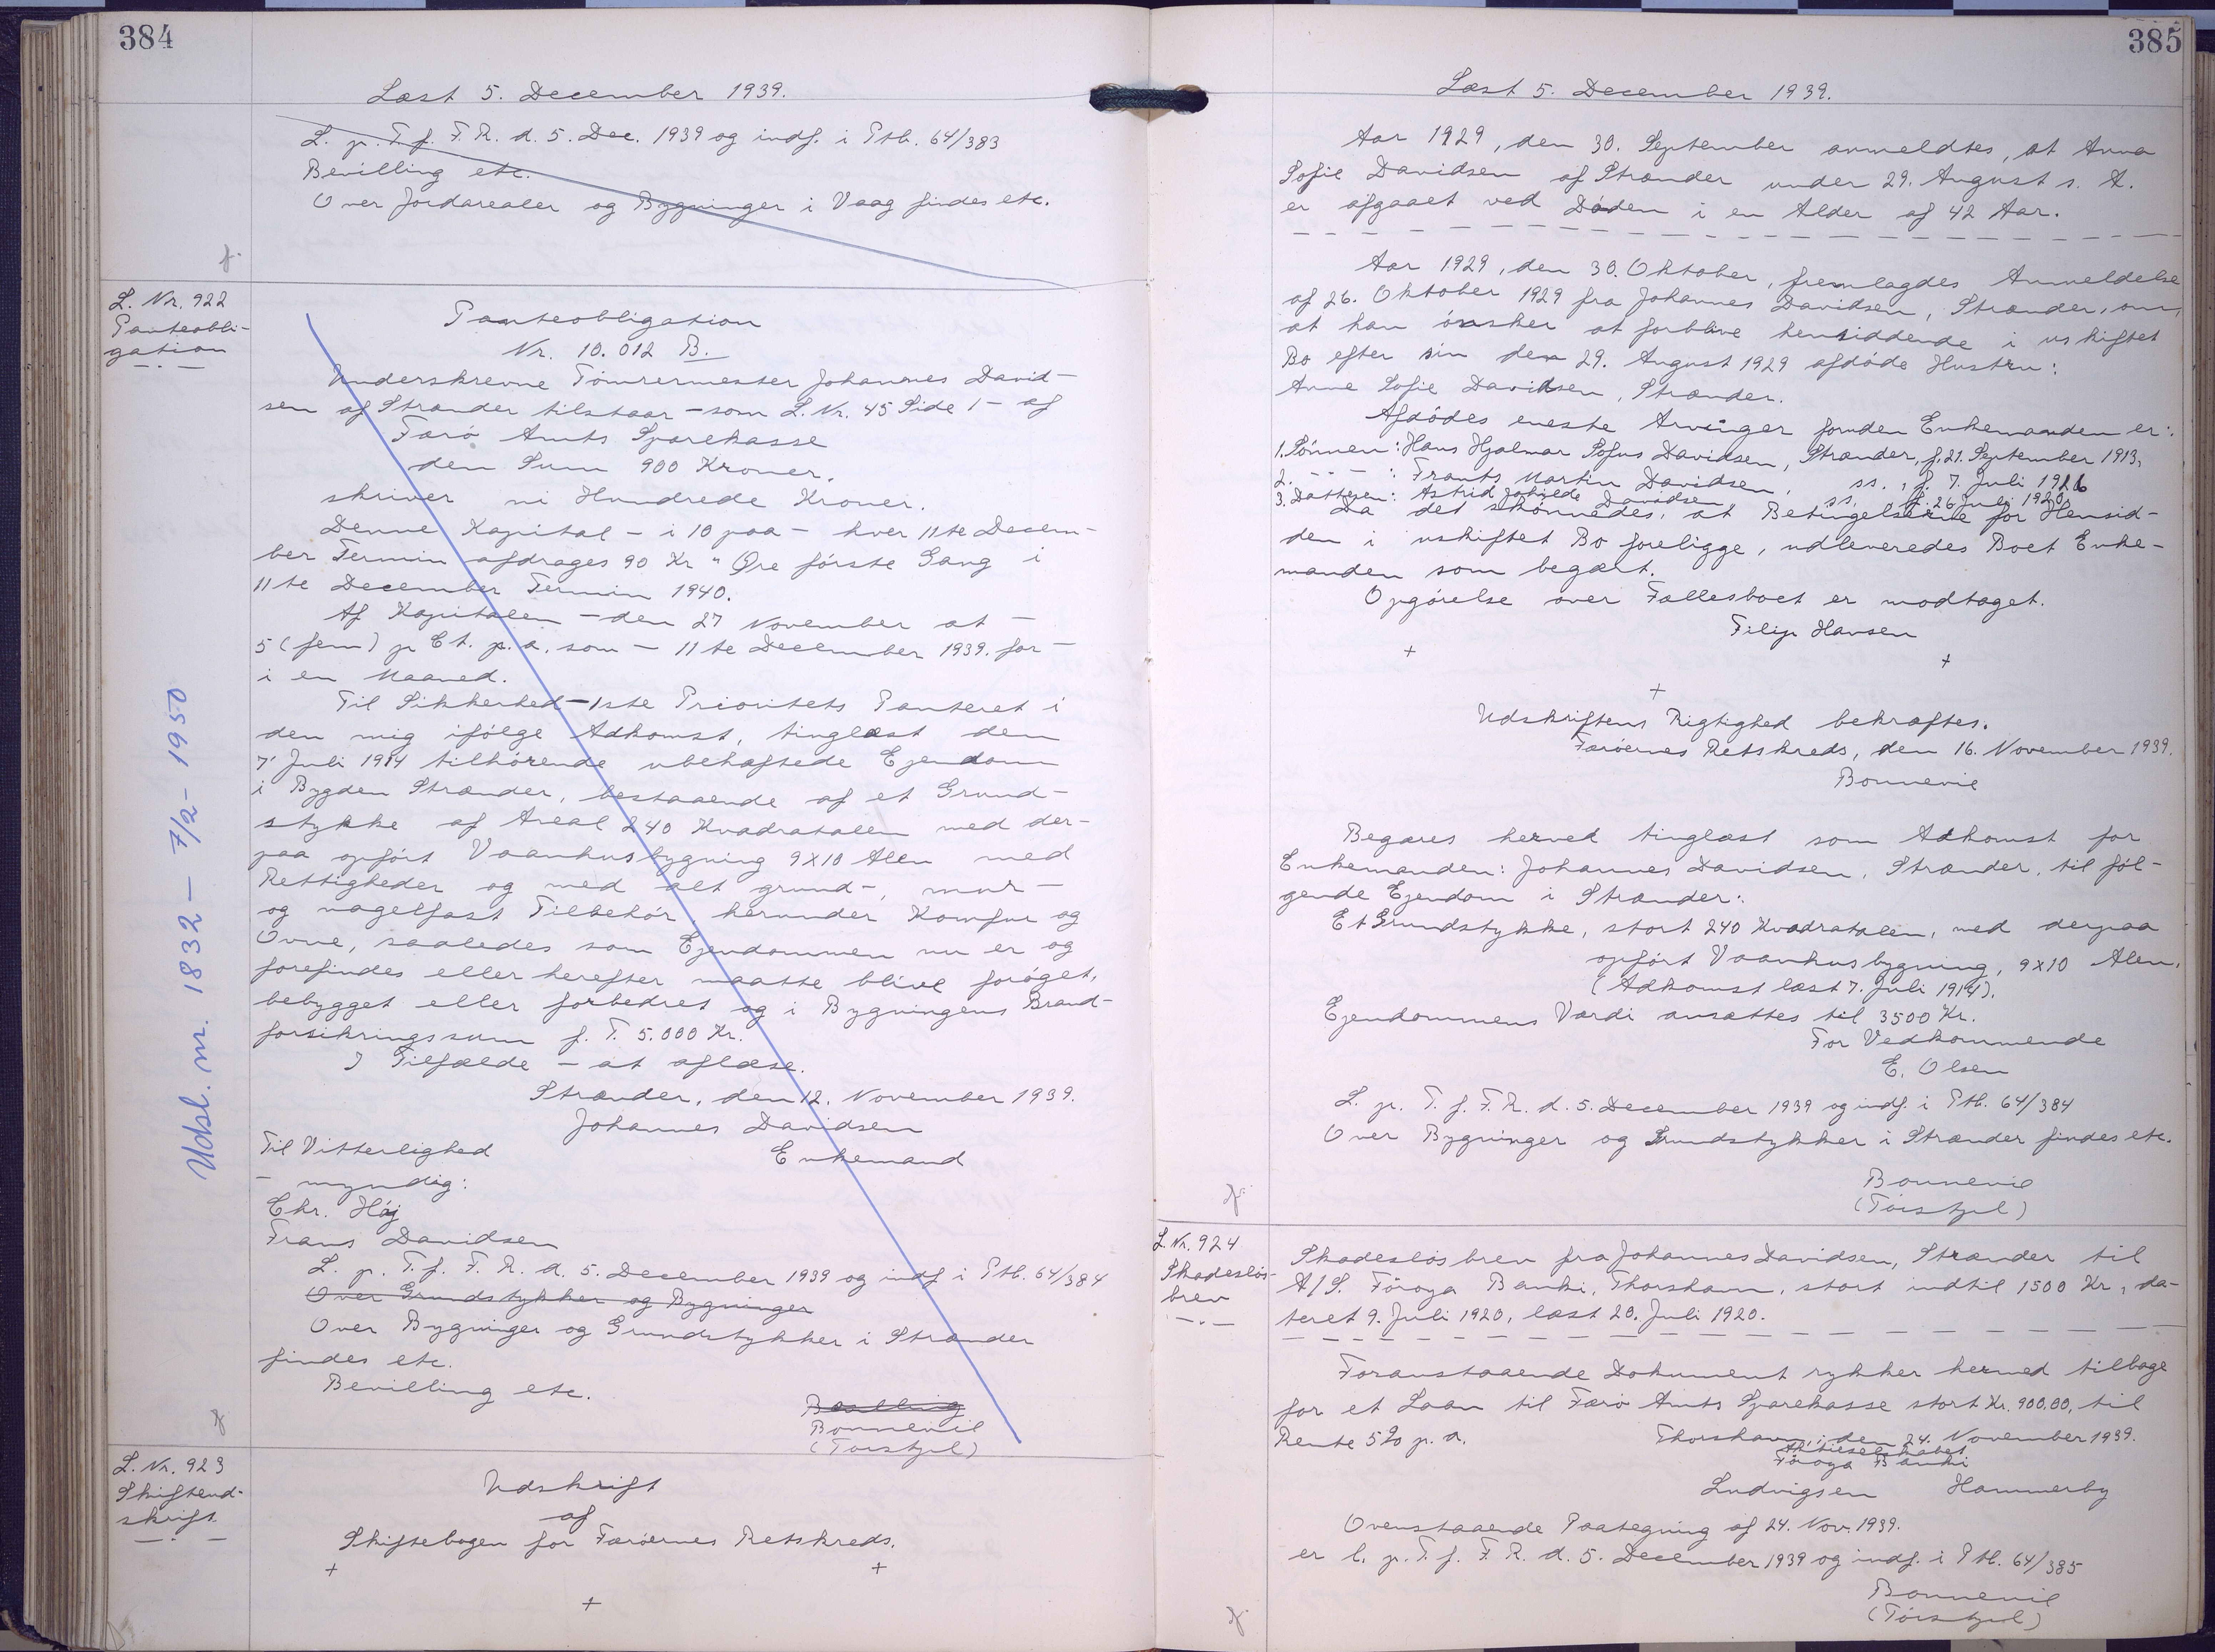 384
Læst 5. December 1939.
L. p. T. f. F. R. d. 5. Dec. 1939 og indf. i Ptb. 64/383
Bevilling etc.
Over Jordarealer og Bygninger i Vaag findes etc.
L. Nr. 922
Panteobli-
gation
Panteobligation
Nr. 10.012 B.
Underskrevne Tömrermester Johannes David-
sen af Strænder tilstaar - som L. Nr. 45 Side 1 - af
Færö Amts Sparekasse
den Sum 900 Kroner,
skriver ni Hundrede Kroner.
Denne Kapital - i 10 paa - hver 11te Decem-
ber Termin afdrages 90 Kr " Øre förste Gang i
11te December Termin 1940.
Af Kapitalen - den 27 November at -
5 (fem) p Ct. p. a. som - 11te December 1939. for -
i en Maaned.
Til Sikkerhed - 1ste Prioritets Panteret i
den mig ifölge Adkomst, tinglæst den
7' Juli 1914 tilhörende ubehæftede Ejendom
i Bygden Strænder, bestaaende af et Grund-
stykke af Areal 240 Kvadratalen med der-
paa opfört Vaanhusbygning 9x10 Alen med
Rettigheder og med alt grund-, mur-
og nagelfast Tilbehör, herunder Komfur og
Ovne, saaledes som Ejendommen nu er og
forefindes eller herefter maatte blive foröget,
bebygget eller forbedret og i Bygningens Brand-
forsikringssum f. T. 5.000 Kr.
I Tilfælde - at aflæse.
Strænder, den 12. November 1939.
Johannes Davidsen
Enkemand
Til Vitterlighed
- myndig:
Chr. Höj
Frans Davidsen
L. p. T. f. F. R. d. 5. December 1939 og indf. i Ptb. 64/384
Over Grundstykker og Bygninger
Over Bygninger og Grundstykker i Strænder
findes etc.
Bevilling etc.
Bonnevie
(Torstzul)
Udsl. nr. 1832 - 7/2 - 1950
L. Nr. 923
Skifteud-
skrift.
Udskrift
af
Skiftebogen for Færöernes Retskreds.
+ +
+
385
Læst 5. December 1939.
Aar 1929, den 30. September anmeldtes, at Anna
Sofie Davidsen af Strænder under 29. August s. A.
er afgaaet ved Döden i en Alder af 42 Aar.
Aar 1929, den 30. Oktober, fremlagdes Anmeldelse
af 26. Oktober 1929 fra Johannes Davidsen, Strænder, om,
at han önsker at forblive hensiddende i uskiftet
Bo efter sin den 29. August 1929 afdöde Hustru:
Anne Sofie Davidsen, Strænder.
Afdödes eneste Arvinger foruden Enkemanden er:
1. Sönnen: Hans Hjalmar Sofus Davidsen, Strænder, f. 21. September 1913,
2. - - - : Frants Martin Davidsen, ss., f. 7. Juli 1916
3. Datteren: Astrid Davidsen ss., f. 26 Juli 1920,
Da det skönnedes, at Betingelserne for Hensid-
den i uskiftet Bo foreligge, udleveredes Boet Enke-
manden som begært.
Opgörelse over Fællesboet er modtaget.
Filip Hansen
+ +
+
Udskriftens Rigtighed bekræftes.
Færöernes Retskreds, den 16. November 1939.
Bonnevie
Begæres herved tinglæst som Adkomst for
Enkemanden: Johannes Davidsen, Strænder, til föl-
gende Ejendom i Strænder:
Et Grundstykke, stort 240 Kvadratalen, med derpaa
opfört Vaanhusbygning, 9x10 Alen,
(Adkomst læst 7. Juli 1914).
Ejendommens Værdi ansættes til 3500 Kr.
For Vedkommende
E. Olsen
L. p. T. f. F. R. d. 5. December 1939 og indf. i Ptb. 64/384
Over Bygninger og Grundstykker i Strænder findes etc.
Bonnevie
(Torstzul)
L. Nr. 924
Skadeslös-
brev
Skadeslösbrev fra Johannes Davidsen, Strænder til
A/S. Föroya Banki, Thorshavn, stort indtil 1500 Kr, da-
teret 9. Juli 1920, læst 20. Juli 1920.
Foranstaaende Dokument rykker hermed tilbage
for et Laan til Færö Amts Sparekasse stort Kr. 900,00, til
Rente 5% p. a.
Thorshavn, den 24. November 1939.
Aktieselskabet
Föroya Banki
Ludvigsen Hammerby
Ovenstaaende Paategning af 24. Nov. 1939.
er l. p. T. f. F. R. d. 5. December 1939 og indf. i Ptb. 64/385
Bonnevie
(Torstzul)